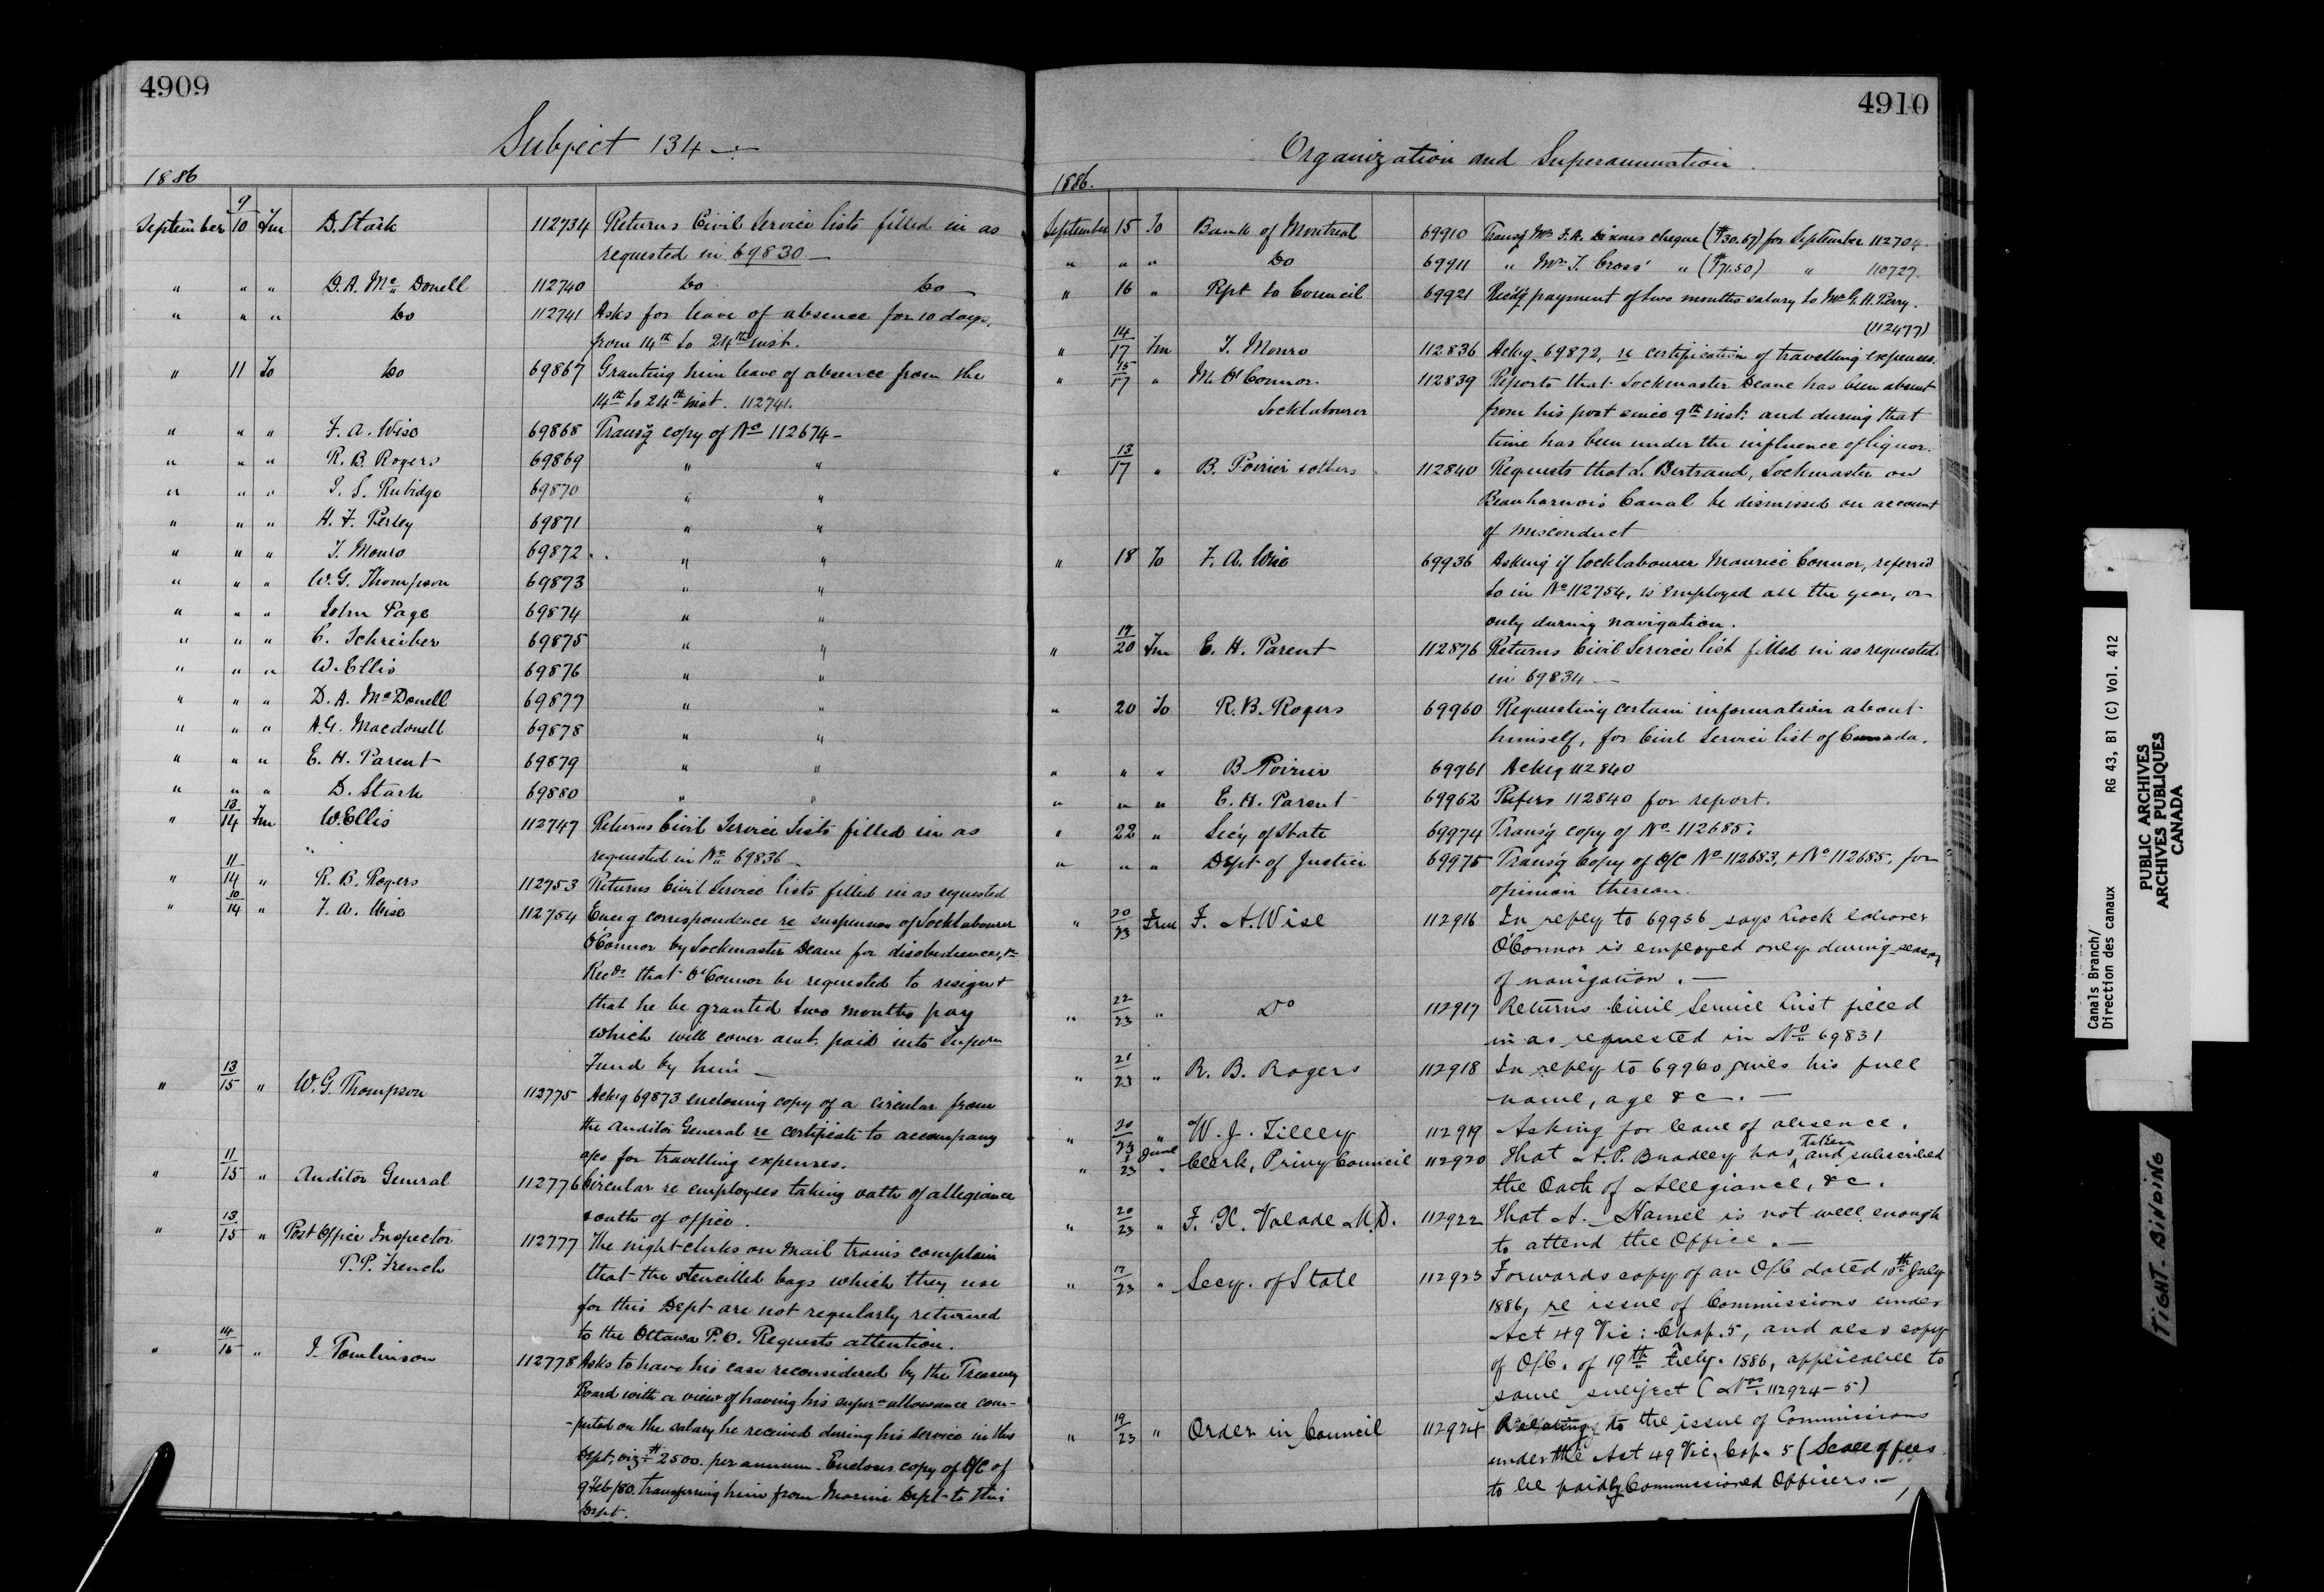 4909
Subject 134
1886
September 9/10 Fm D. Stark 112734 Returns Civil Service lists filled in as
requested in 69830 —
" " " D. A. Mc Donell 112740 Do Do
" " " Do 112741 Asks for leave of absence for 10 days,
from 14th to 24th inst.
" 11 To Do 69867 Granting him leave of absence from the
14th to 24th inst. 112741.
" " " F. A. Wise 69868 Transg copy of No 112674 —
" " " R. B. Rogers 69869 " "
" " " T. S. Rubidge 69870 " "
" " " H. F. Perley 69871 " "
" " " T. Monro 69872 " "
" " " W. G. Thompson 69873 " "
" " " John Page 69874 " "
" " " C. Schreiber 69875 " "
" " " W. Ellis 69876 " "
" " " D. A. McDonell 69877 " "
" " " A. G. Macdonell 69878 " "
" " " E. H. Parent 69879 " "
" " " D. Stark 69880 " "
" 13/14 Fm W. Ellis 112747 Returns Civil Service Lists filled in as
requested in No 69836 —
" 11/14 " R. B. Rogers 112753 Returns Civil Service lists filled in as requested
" 10/14 " F. A. Wise 112754 Encg correspondence re suspension of Locklabourer
O'Connor by Lockmaster Deane for disobedience, &
Recds that O'Connor be requested to resign &
that he be granted two months pay
which will cover amt. paid into Supern
Fund by him —
" 13/15 " W. G. Thompson 112775 Ackg 69873 enclosing copy of a circular from
the Auditor General re certificate to accompany
a/cs for travelling expenses.
" 11/15 " Auditor General 112776 Circular re employees taking oath of allegiance
& oath of office.
" 13/15 " Post Office Inspector 112777 The night clerks on mail trains complain
T. P. French that the stencilled bags which they use
for this Dept are not regularly returned
to the Ottawa P.O. Requests attention.
" 14/15 " J. Tomlinson 112778 Asks to have his case reconsidered by the Treasury
Board with a view of having his supern allowance com-
-puted on the salary he received during his service in this
Dept, viz $2500. per annum. Encloses copy of O/C of
9 Feb/80. transferring him from Marine Dept to this
Dept.
4910
Organization and Superannuation.
1886.
September 15 To Bank of Montreal 69910 Transg Mr F. A. Dixons cheque ($30.67) for September 112704.
" " " Do 69911 " Mr T. Cross' " ($71.50) " 110727.
" 16 " Rpt to Council 69921 Recdg payment of two months salary to Mr G. H. Perry.
(112477)
" 14/17 Fm T. Monro 112836 Ackg 69872, re certification of travelling expenses.
" 15/17 " M. O'Connor. 112839 Reports that Lockmaster Deane has been absent
Locklabourer from his post since 9th inst. and during that
time has been under the influence of liquor.
" 13/17 " B. Poirier & others 112840 Requests that L. Bertrand, Lockmaster on
Beauharnois Canal be dismissed on account
of misconduct
" 18 To F. A. Wise 69936 Asking if locklabourer Maurice Connor, referred
to in No 112754, is employed all the year, or
only during navigation.
" 19/20 Fm E. H. Parent 112876 Returns Civil Service list filled in as requested
in 69834 —
" 20 To R. B. Rogers 69960 Requesting certain information about
himself, for Civil Service list of Canada.
" " " B Poirier 69961 Ackg 112840
" " " E. H. Parent 69962 Refers 112840 for report.
" 22 " Secy of State 69974 Transg copy of No 112685.
" " " Dept of Justice 69975 Transg Copy of O/C No 112683, & No 112685, for
opinion thereon.
" 20/23 From F. A. Wise 112916 In reply to 69936 says Lock laborer
O'Connor is employed only during season
of navigation. —
" 22/23 " Do 112917 Returns Civil Service List filled
in as requested in No 69831
" 21/23 " R. B. Rogers 112918 In reply to 69960 gives his full
name, age &c. —
" 20/23 " W. J. Tilley 112919 Asking for leave of absence.
" 1 June/23 " Clerk, Privy Council 112920 That A. P. Bradley has taken and subscribed
the Oath of Allegiance, &c.
" 20/23 " F. X. Valade M.D. 112922 That A. Hamel is not well enough
to attend the Office. —
" 17/23 " Secy. of State 112923 Forwards copy of an O/C dated 10th July
1886, re issue of Commissions under
Act 49 Vic: Chap. 5, and also copy
of O/C. of 19th July. 1886, applicable to
same subject (Nos. 112924-5)
" 19/23 " Order in Council 112924 Relating to the issue of Commissions
under the Act 49 Vic. Cap. 5 (Scale of fees
to be paid by Commissioned Officers. —
Canals Branch/
Direction des canaux RG 43, B1 (C) Vol. 412
PUBLIC ARCHIVES
ARCHIVES PUBLIQUES
CANADA
TIGHT BINDING